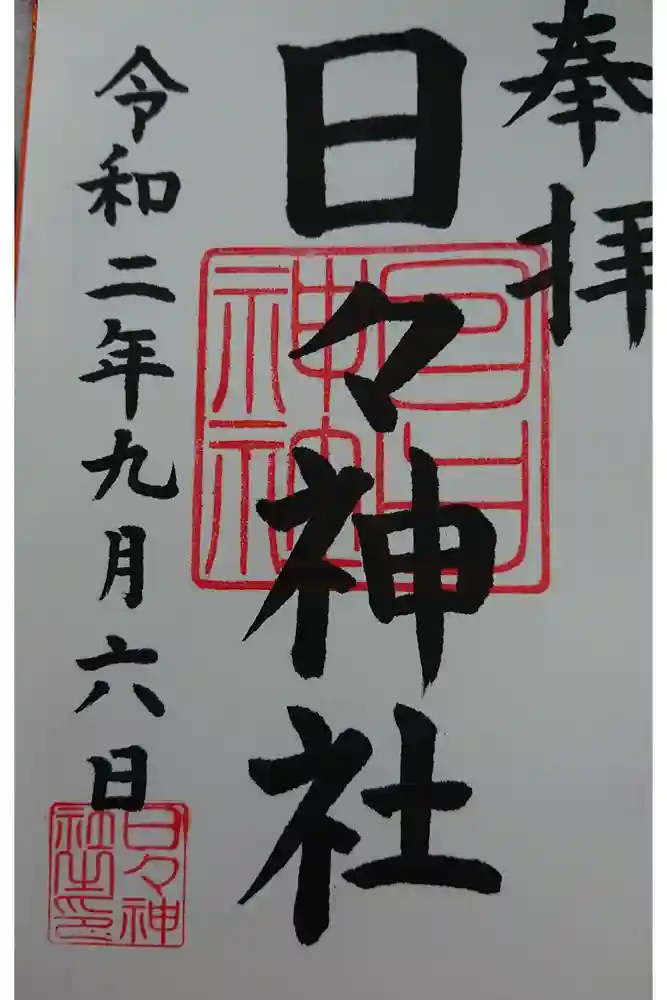 奉拝
日々神社
日日神社
令和二年九月六日
日々神社之印